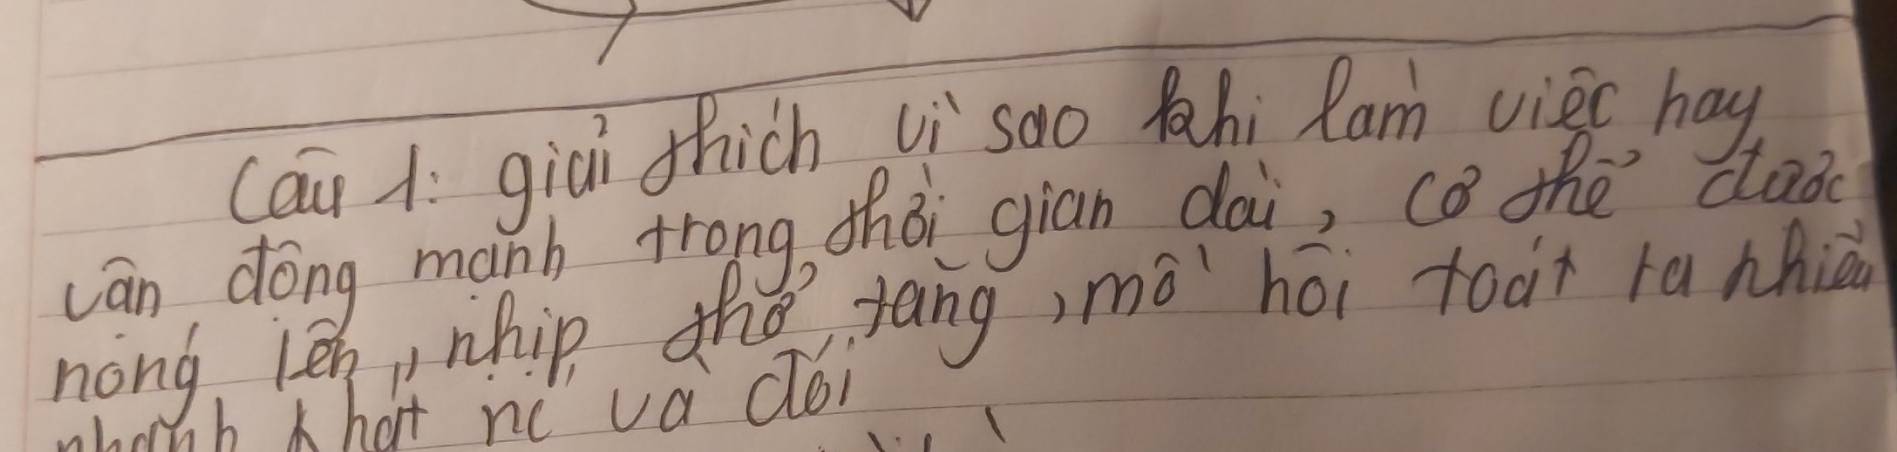 Câu 1: giải thích vì sao khi làm việc hay
vận động mạnh trong thời gian dài, cơ thể được
nóng lên, nhịp thở tăng, mồ hôi toát ra nhiều
nhanh khát nc và đói